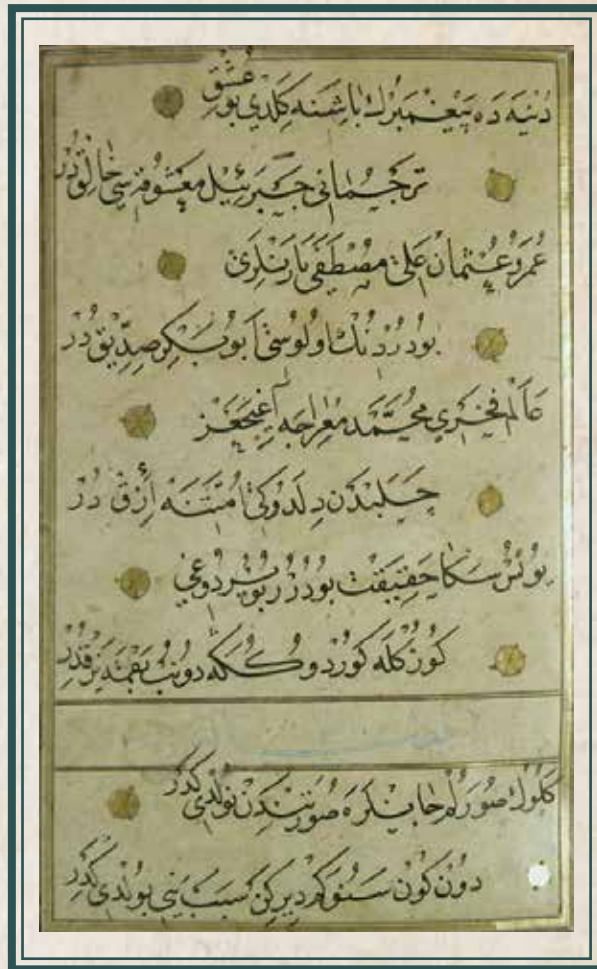 دُنْيَه دَه پَيْغَمْبَرُكْ بَاشِنَه كَلْدِي بُو عِشْقْ
تَرْجُمَانِي جَبْرَئِيلْ مَعْشُوقَه سِي خَالِقْ دُرْ
عُمَرُ و عُثْمَانْ عَلِي مُصْطَفَي يَارَنْلَرِي
بُو دُرْدُنُكْ اُولُوسِي اَبُو بَكِرْ صِدِّيقْ دُرْ
عَالَمْ فَخْرِي مُحَمَّدْ مِعْرَاجَه اَغِيجَغَزْ
چَلَبِدَنْ دِلَدُوكِي اُمَّتِنَه اَزِقْ دُرْ
يُونُسْ سَكَا حَقِيقَتْ بُودُرُرْ بُويُرْدُوغِي
كُوزُكْلَه كُوردُوكُكَه دُونُبْ بَقْمَه
كَلُوكْ صُورَلُمْ جَانْلَرَه صُورَتِنْدَنْ نُولْدِي كِدَرْ
دُونْ كُونْ سَنُوكَمْ دِيرْكَنْ سَبَبْ نَيِي بُولْدِي كِدَرْ